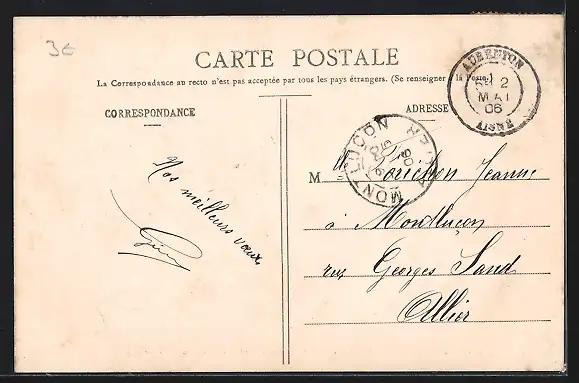 3€
CARTE POSTALE
La Correspondance au recto n'est pas acceptée par tous les pays étrangers. (Se renseigner à la Poste.)
CORRESPONDANCE
ADRESSE
AUBENTON
2
MAI
06
AISNE
MONTLUCON
ALLIER
06
Nos meilleurs vœux,
M lle Jeanne
à Montluçon
rue Georges Sand
Allier